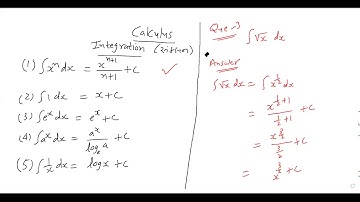 Calculus
Integration (संकलन)
(1) ∫xⁿdx = xⁿ⁺¹/n+1 + C
(2) ∫1dx = x + C
(3) ∫eˣdx = eˣ + C
(4) ∫aˣdx = aˣ/logₑa + C
(5) ∫1/x dx = log x + C
Que-3 ∫√x dx
Answer
∫√x dx = ∫x^½ dx
= x^(½+1)/(½+1) + C
= x^(3/2)/(3/2) + C
= x^(3/2) + C